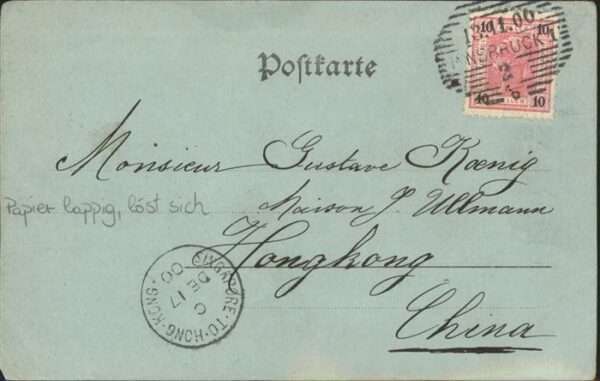 10 10
11.00
INNSBRUCK
2
10 10
Postkarte
Monsieur Gustave Kœnig
Maison J. Ullmann
Papier lappig, löst sich
Hongkong
China
SINGAPORE·TO·HONG-KONG·
C
DE 17
00